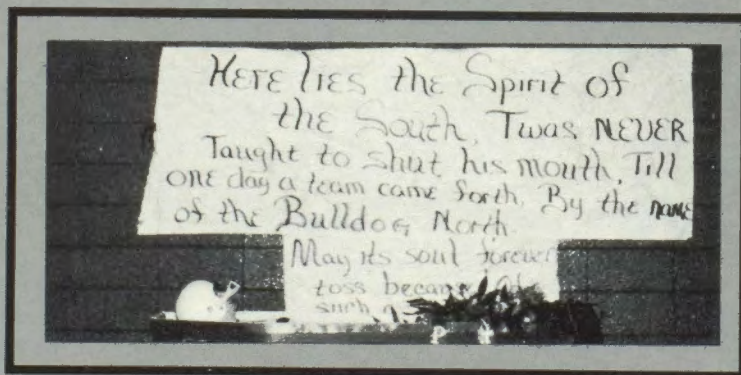 HERE LIES the Spirit of
the South, Twas NEVER
Taught to shut his mouth, Till
ONE day a team came forth, By the NAME
of the Bulldog North.
May its soul forever
toss because
such a